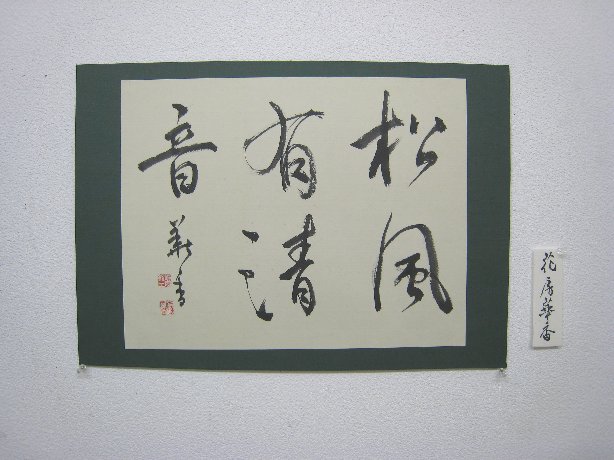 松風
有清
音
華香
花房華香